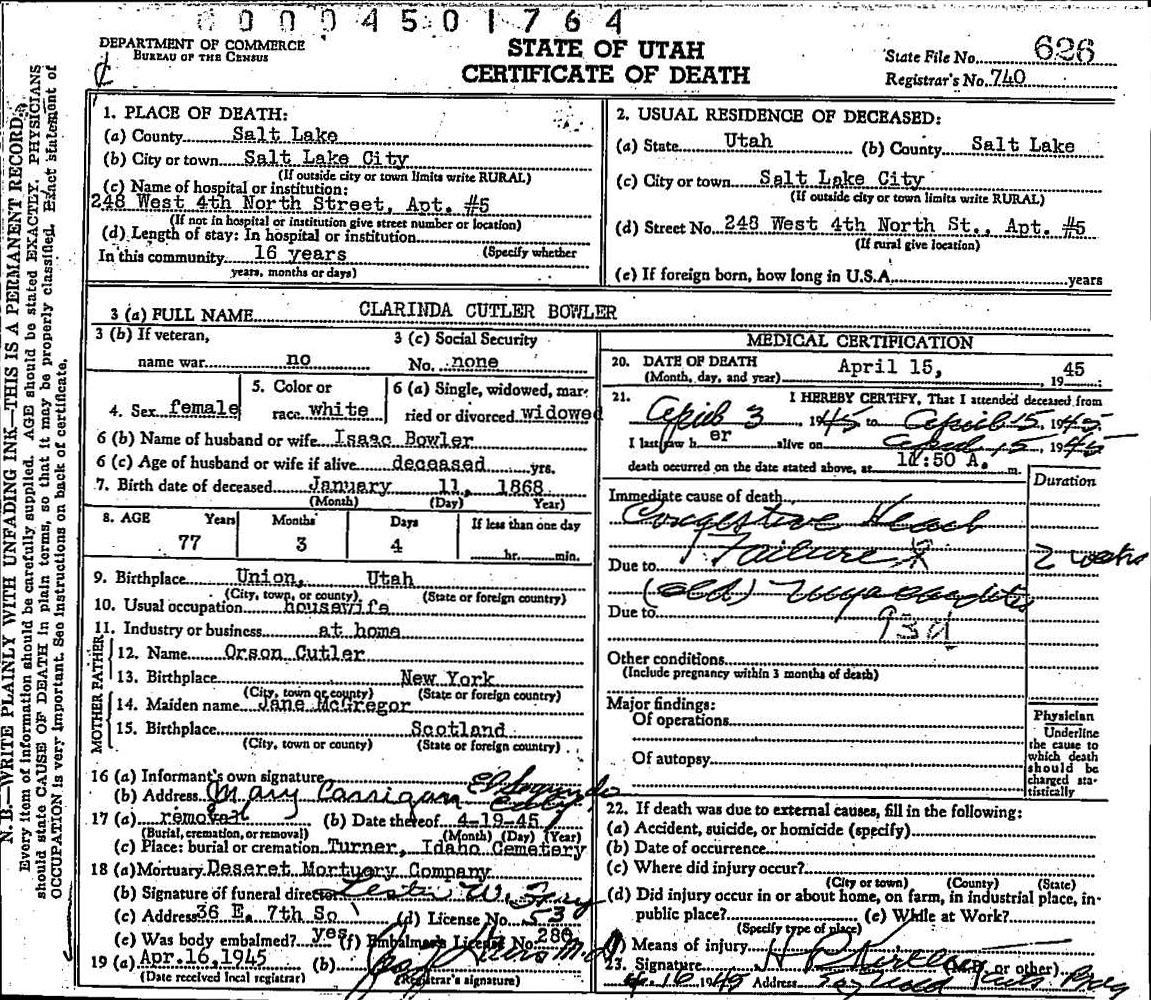 0004501764
DEPARTMENT OF COMMERCE
BUREAU OF THE CENSUS
STATE OF UTAH
CERTIFICATE OF DEATH
State File No. 626
Registrar's No. 740
N. B.—WRITE PLAINLY WITH UNFADING INK—THIS IS A PERMANENT RECORD.
Every item of information should be carefully supplied. AGE should be stated EXACTLY. PHYSICIANS
should state CAUSE OF DEATH in plain terms, so that it may be properly classified. Exact statement of
OCCUPATION is very important. See instructions on back of certificate.
1. PLACE OF DEATH:
(a) County Salt Lake
(b) City or town Salt Lake City
(If outside city or town limits write RURAL)
(c) Name of hospital or institution:
248 West 4th North Street, Apt. #5
(If not in hospital or institution give street number or location)
(d) Length of stay: In hospital or institution
In this community 16 years (Specify whether
years, months or days)
2. USUAL RESIDENCE OF DECEASED:
(a) State Utah (b) County Salt Lake
(c) City or town Salt Lake City
(If outside city or town limits write RURAL)
(d) Street No. 248 West 4th North St., Apt. #5
(If rural give location)
(e) If foreign born, how long in U.S.A. years
3 (a) FULL NAME CLARINDA CUTLER BOWLER
3 (b) If veteran,
name war no
3 (c) Social Security
No. none
4. Sex female
5. Color or
race white
6 (a) Single, widowed, mar
ried or divorced widowed
6 (b) Name of husband or wife Isaac Bowler
6 (c) Age of husband or wife if alive deceased yrs.
7. Birth date of deceased January 11, 1868
(Month) (Day) Year)
8. AGE Years Months Days If less than one day
77 3 4 hr. min.
9. Birthplace Union, Utah
(City, town, or county) (State or foreign country)
10. Usual occupation housewife
11. Industry or business at home
FATHER
12. Name Orson Cutler
13. Birthplace New York
(City, town or county) (State or foreign country)
MOTHER
14. Maiden name Jane McGregor
15. Birthplace Scotland
(City, town or county) (State or foreign country)
16 (a) Informant's own signature
(b) Address Mary Carrigan
17 (a) removal (b) Date thereof 4-19-45
(Burial, cremation, or removal) (Month) (Day) (Year)
(c) Place: burial or cremation Turner, Idaho Cemetery
18 (a) Mortuary Deseret Mortuary Company
(b) Signature of funeral director
(c) Address 36 E. 7th So (d) License No. 53
(e) Was body embalmed? yes (f) Embalmer's License No. 280
19 (a) Apr.16,1945 (b)
(Date received local registrar) (Registrar's signature)
MEDICAL CERTIFICATION
20. DATE OF DEATH April 15, 1945
(Month, day, and year)
21. I HEREBY CERTIFY, That I attended deceased from
April 3, 1945 to April 15, 1945
I last saw h er alive on April 15, 1945
death occurred on the date stated above, at 11:50 A. m.
Duration
Immediate cause of death
Congestive Heart
Failure 2 weeks
Due to
(old)
Due to
93d
Other conditions
(Include pregnancy within 3 months of death)
Major findings:
Of operations
Of autopsy
Physician
Underline
the cause to
which death
should be
charged sta-
tistically
22. If death was due to external causes, fill in the following:
(a) Accident, suicide, or homicide (specify)
(b) Date of occurrence
(c) Where did injury occur?
(City or town) (County) (State)
(d) Did injury occur in or about home, on farm, in industrial place, in
public place? (e) While at Work?
(Specify type of place)
(f) Means of injury
23. Signature (M.D. or other)
1945 Address